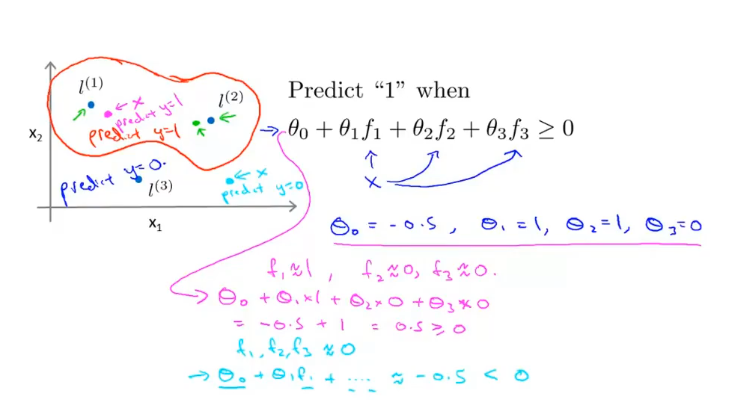 l^{(1)}
← x
predict y=1
l^{(2)}
predict y=1
x_2
predict y=0.
l^{(3)}
← x
predict y=0
x_1
Predict “1” when
θ_0 + θ_1 f_1 + θ_2 f_2 + θ_3 f_3 ≥ 0
x
θ_0 = -0.5 , θ_1 = 1, θ_2 = 1, θ_3 = 0
f_1 ≈ 1 , f_2 ≈ 0, f_3 ≈ 0.
→ θ_0 + θ_1 × 1 + θ_2 × 0 + θ_3 × 0
= -0.5 + 1 = 0.5 ≥ 0
f_1, f_2, f_3 ≈ 0
→ θ_0 + θ_1 f_1 + .... ≈ -0.5 < 0